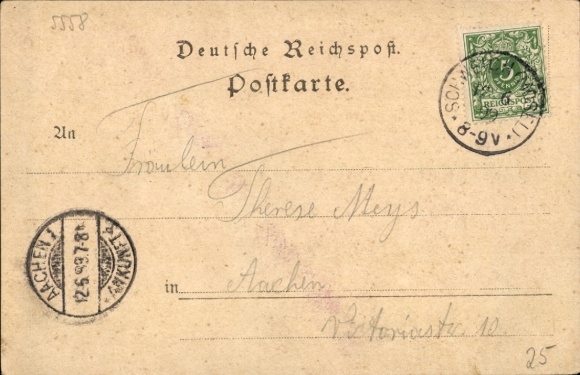 2228
Deutsche Reichspost.
Postkarte.
5
REICHSPOST
8-9V
An
Fräulein
Therese Meys
AACHEN 1
12.6.99.7-8N
ANKUNFT
in Aachen
Victoriastr. 10
25